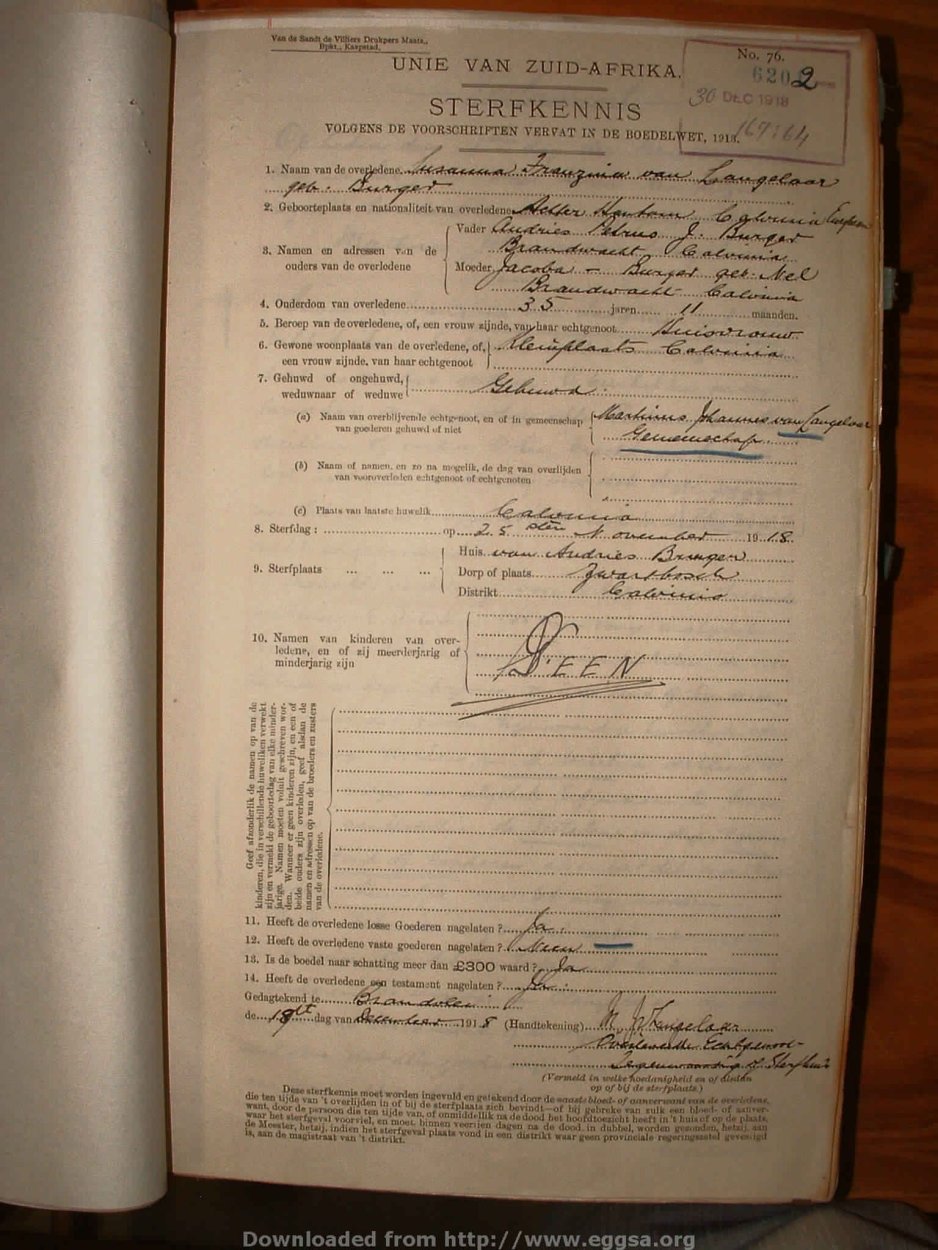 Van de Sandt de Villiers Drukpers Maats.,
Bpkt., Kaapstad.
No. 76.
UNIE VAN ZUID-AFRIKA.
6202
30 DEC 1918
STERFKENNIS
VOLGENS DE VOORSCHRIFTEN VERVAT IN DE BOEDELWET, 1913.
1. Naam van de overledene Susanna Franzina van Langelaar
geb. Burger
2. Geboorteplaats en nationaliteit van overledene Achter Hantam Calvinia
3. Namen en adressen van de ouders van de overledene
Vader Andries Petrus J. Burger
Brandwacht Calvinia
Moeder Jacoba - Burger geb. Nel
Brandwacht Calvinia
4. Ouderdom van overledene 35 jaren 11 maanden.
5. Beroep van de overledene, of, een vrouw zijnde, van haar echtgenoot Huisvrouw
6. Gewone woonplaats van de overledene, of, een vrouw zijnde, van haar echtgenoot Kleinplaats Calvinia
7. Gehuwd of ongehuwd, weduwnaar of weduwe Gehuwd
(a) Naam van overblijvende echtgenoot, en of in gemeenschap van goederen gehuwd of niet
Marthinus Johannes van Langelaar
Gemeenschap
(b) Naam of namen, en zo na mogelik, de dag van overlijden van vooroverleden echtgenoot of echtgenoten
(c) Plaats van laatste huwelik Calvinia
8. Sterfdag: op 25sten November 1918.
9. Sterfplaats ... ... ...
Huis van Andries Burger
Dorp of plaats Zwartbosch
Distrikt Calvinia
10. Namen van kinderen van overledene, en of zij meerderjarig of minderjarig zijn
GEEN
Geef afzonderlik de namen op van de
kinderen, die in verschillende huweliken verwekt
zijn en vermeld de geboortedag van elke minderjarige.
Namen moeten voluit geschreven worden.
Wanneer er geen kinderen zijn, en een of
beide ouders zijn overleden, geef alsdan de
namen en adressen op van de broeders en zusters
van de overledene.
11. Heeft de overledene losse Goederen nagelaten? Ja.
12. Heeft de overledene vaste goederen nagelaten? Neen
13. Is de boedel naar schatting meer dan £300 waard? Ja
14. Heeft de overledene een testament nagelaten? Ja.
Gedagtekend te Brandvlei
de 18de dag van December 1918 (Handtekening) M. J. v Langelaar
Overlevende Echtgenoot
(Vermeld in welke hoedanigheid en of tekende
op of bij de sterfplaats.)
Deze sterfkennis moet worden ingevuld en getekend door de naaste bloed- of aanverwant van de overledene,
die ten tijde van 't overlijden in of bij de sterfplaats zich bevindt—of bij gebreke van zulk een bloed- of aanverwant,
door de persoon die ten tijde van, of onmiddellik na de dood het hoofdtoezicht heeft in 't huis of op de plaats,
waar het sterfgeval voorviel, en moet, binnen veertien dagen na de dood, in dubbel, worden gezonden, hetzij, aan
de Meester, hetzij, indien het sterfgeval plaats vond in een distrikt waar geen provinciale regeringszetel gevestigd
is, aan de magistraat van 't distrikt.
Downloaded from http://www.eggsa.org